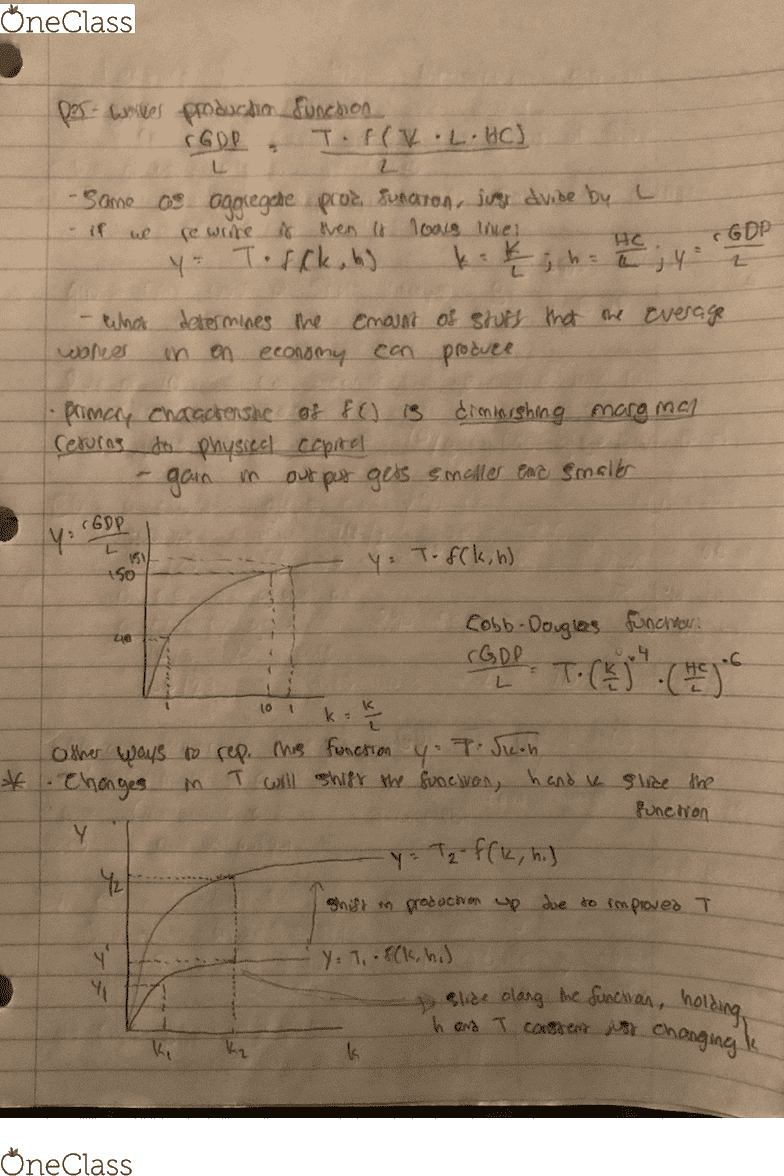 OneClass
Per-worker production function
rGDP/L = T · f(K · L · HC)/L
- Same as aggregate prod. function, just divide by L
- if we rewrite it then it looks like:
y = T · f(k, h)   k = K/L ; h = HC/L ; y = rGDP/L
- What determines the amount of stuff that the average
worker in an economy can produce
· primary characteristic of f() is diminishing marginal
returns to physical capital
- gain in output gets smaller and smaller
y = rGDP/L
151
150
y = T · f(k, h)
40
Cobb-Douglas function:
rGDP/L = T · (K/L)^.4 · (HC/L)^.6
1 10 1 k = K/L
Other ways to rep. this function y = T · √k·h
* · Changes in T will shift the function, h and k slide the
function
y
y = T2 · f(k, h1)
y2
shift in production up due to improved T
y'
y = T1 · f(k, h1)
y1
slide along the function, holding
h and T constant just changing k
k1 k2 k
OneClass